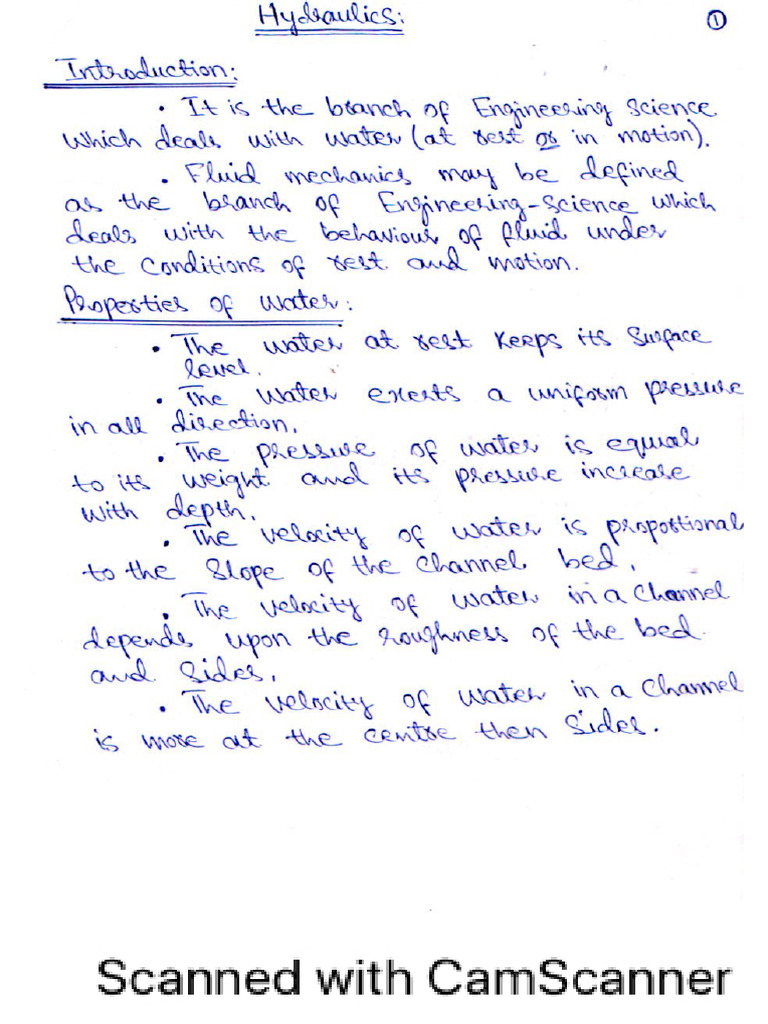 Hydraulics:
①
Introduction:
• It is the branch of Engineering Science
which deals with water (at rest or in motion).
• Fluid mechanics may be defined
as the branch of Engineering-Science which
deals with the behaviour of fluid under
the conditions of rest and motion.
Properties of water:
• The water at rest keeps its surface
level.
• The water exerts a uniform pressure
in all direction.
• The pressure of water is equal
to its weight and its pressure increase
with depth.
• The velocity of water is propostional
to the slope of the channel bed.
• The velocity of water in a channel
depends upon the roughness of the bed
and sides.
• The velocity of water in a channel
is more at the centre then sides.
Scanned with CamScanner